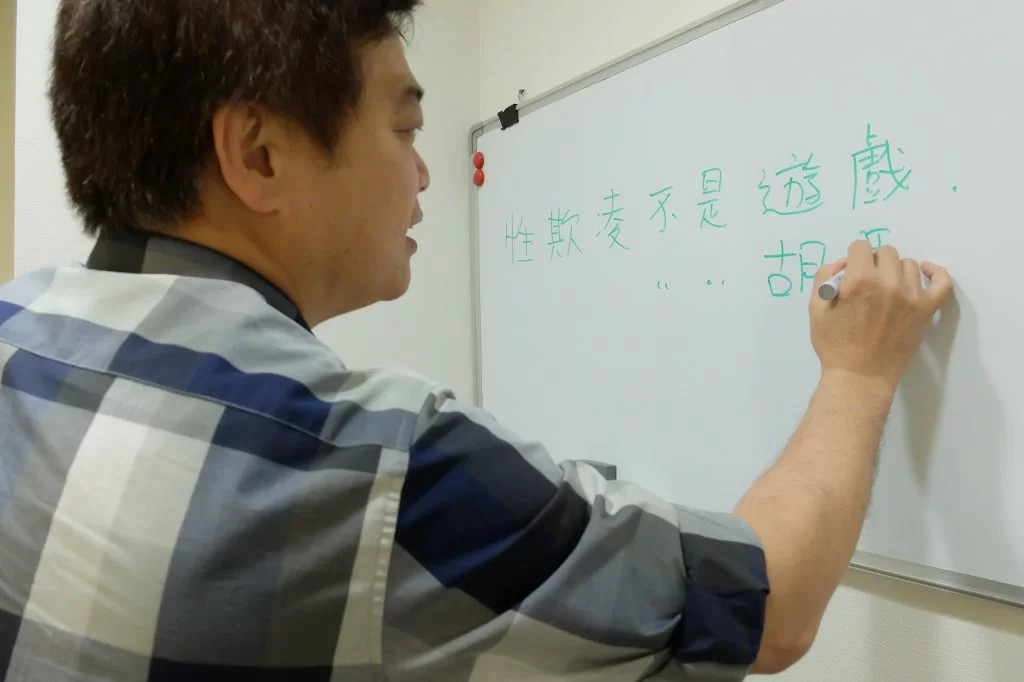 性欺凌不是遊戲.
〃 〃 胡